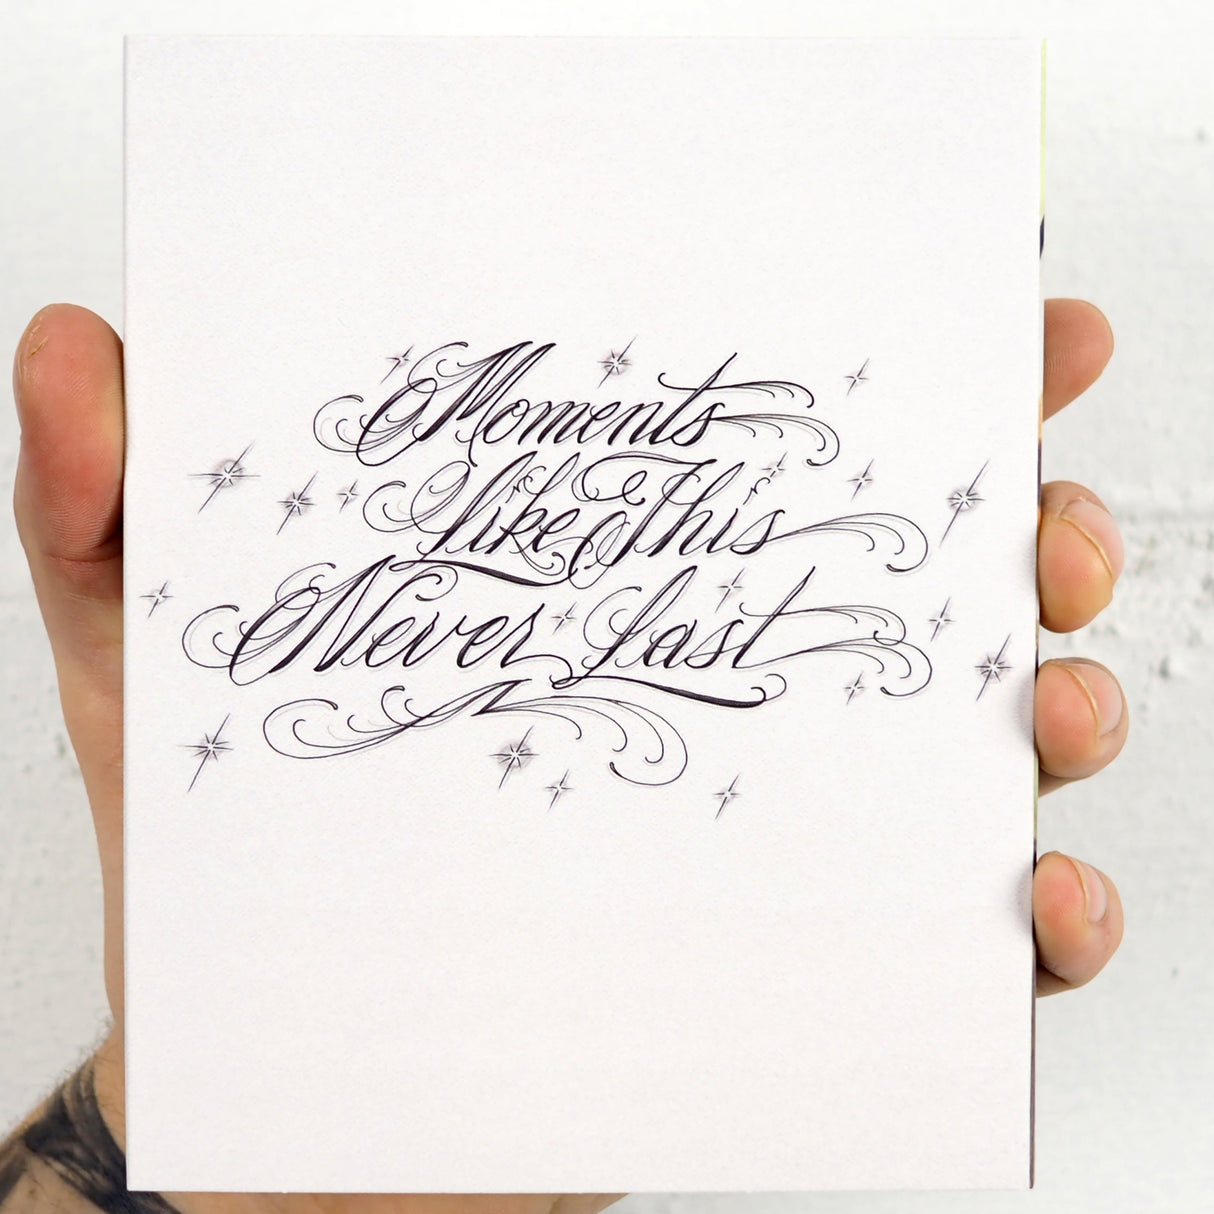 Moments
Like This
Never Last